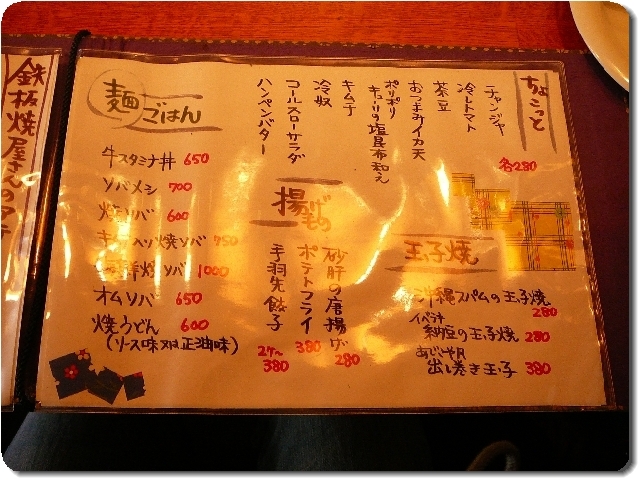 鉄板焼屋さんのアテ
ちょこっと
チャンジャ
冷しトマト
茶豆
おつまみイカ天
ポリポリ
キューリの塩昆布和え
キムチ
冷奴
コールスローサラダ
ハンペンバター
各280
麺ごはん
牛スタミナ丼 650
ソバメシ 700
焼ソバ 600
焼ソバ 750
焼ソバ 1000
オムソバ 650
焼うどん 600
(ソース味又は正油味)
揚げもの
砂肝の唐揚げ 280
ポテトフライ 380
手羽先餃子 2ケ〜380
玉子焼
沖縄スパムの玉子焼 280
納豆の玉子焼 280
出し巻き玉子 380